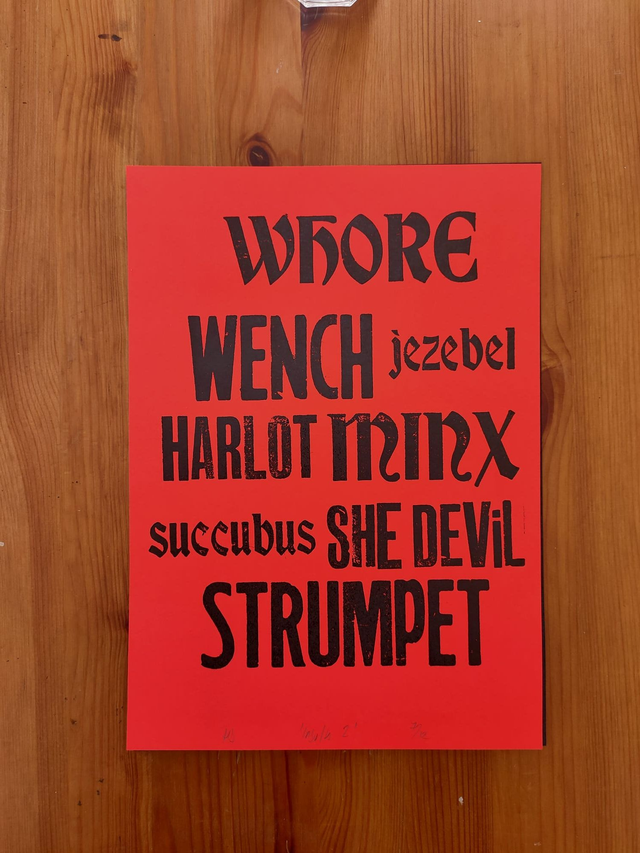 WhORE
WENCH jezebel
HARLOT minx
succubus SHE DEViL
STRUMPET